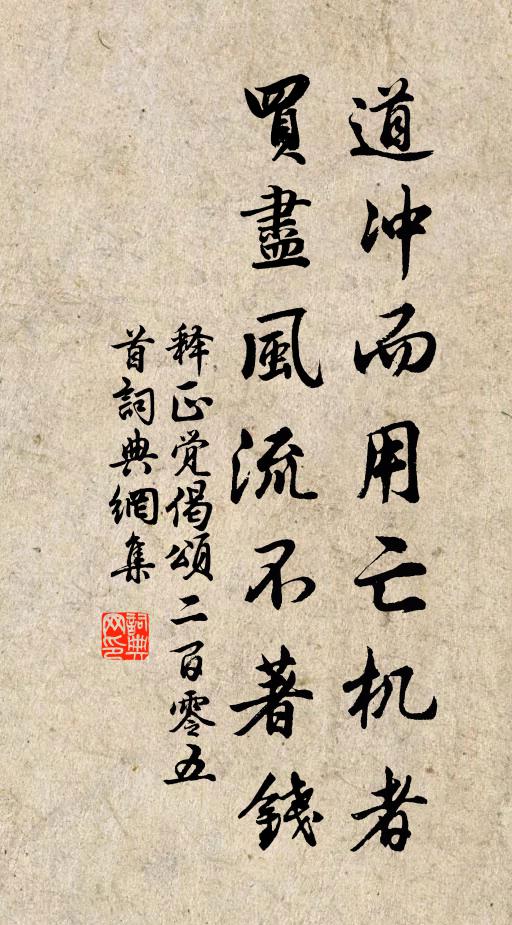 道冲而用亡机者
買盡風流不著錢
释正觉偈頌二百零五
首詞典網集
詞典网印